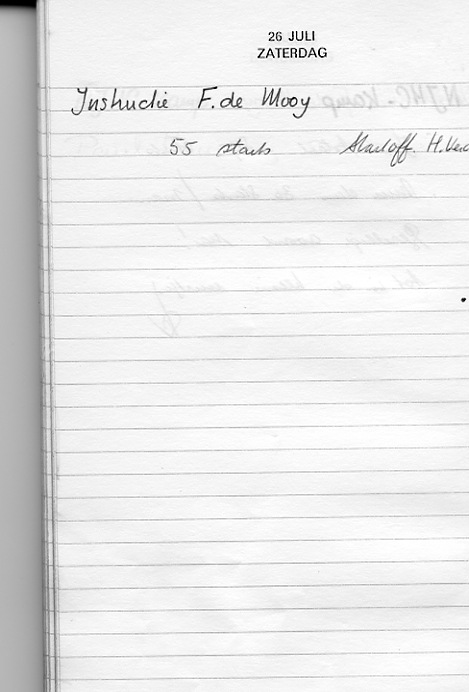 26 JULI
ZATERDAG
Instructie F. de Mooy
55 starts Startoff. H.